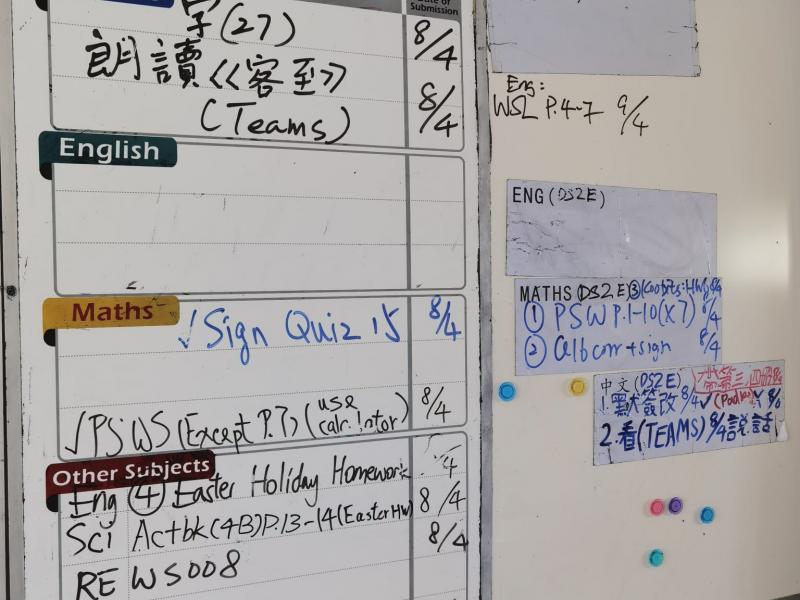 Submission
字(27) 8/4
朗讀《客至》
(Teams) 8/4
English
Maths
✓Sign Quiz 15 8/4
✓PS WS (Except P.7) (use calculator) 8/4
Other Subjects
Eng ④ Easter Holiday Homework /4
Sci Actbk(4B)P.13-14(Easter HW) 8/4
RE WS008 8/4
Eng:
WSL P.4-7 9/4
ENG (DS2E)
MATHS (DS2E) ③
① PSW P.1-10 (X 7) 8/4
② alb corr + sign 8/4
中文 (DS2E)
1. 默簽改 8/4 ✓
2. 看(TEAMS) 8/4 說話